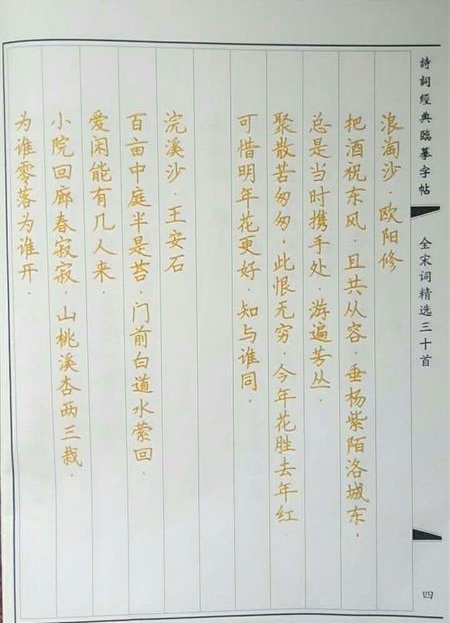 詩詞經典臨摹字帖
全宋词精选三十首
四
浪淘沙·欧阳修
把酒祝东风·且共从容·垂杨紫陌洛城东·
总是当时携手处·游遍芳丛·
聚散苦匆匆·此恨无穷·今年花胜去年红
可惜明年花更好·知与谁同·
浣溪沙·王安石
百亩中庭半是苔·门前白道水萦回·
爱闲能有几人来·
小院回廊春寂寂·山桃溪杏两三栽·
为谁零落为谁开·